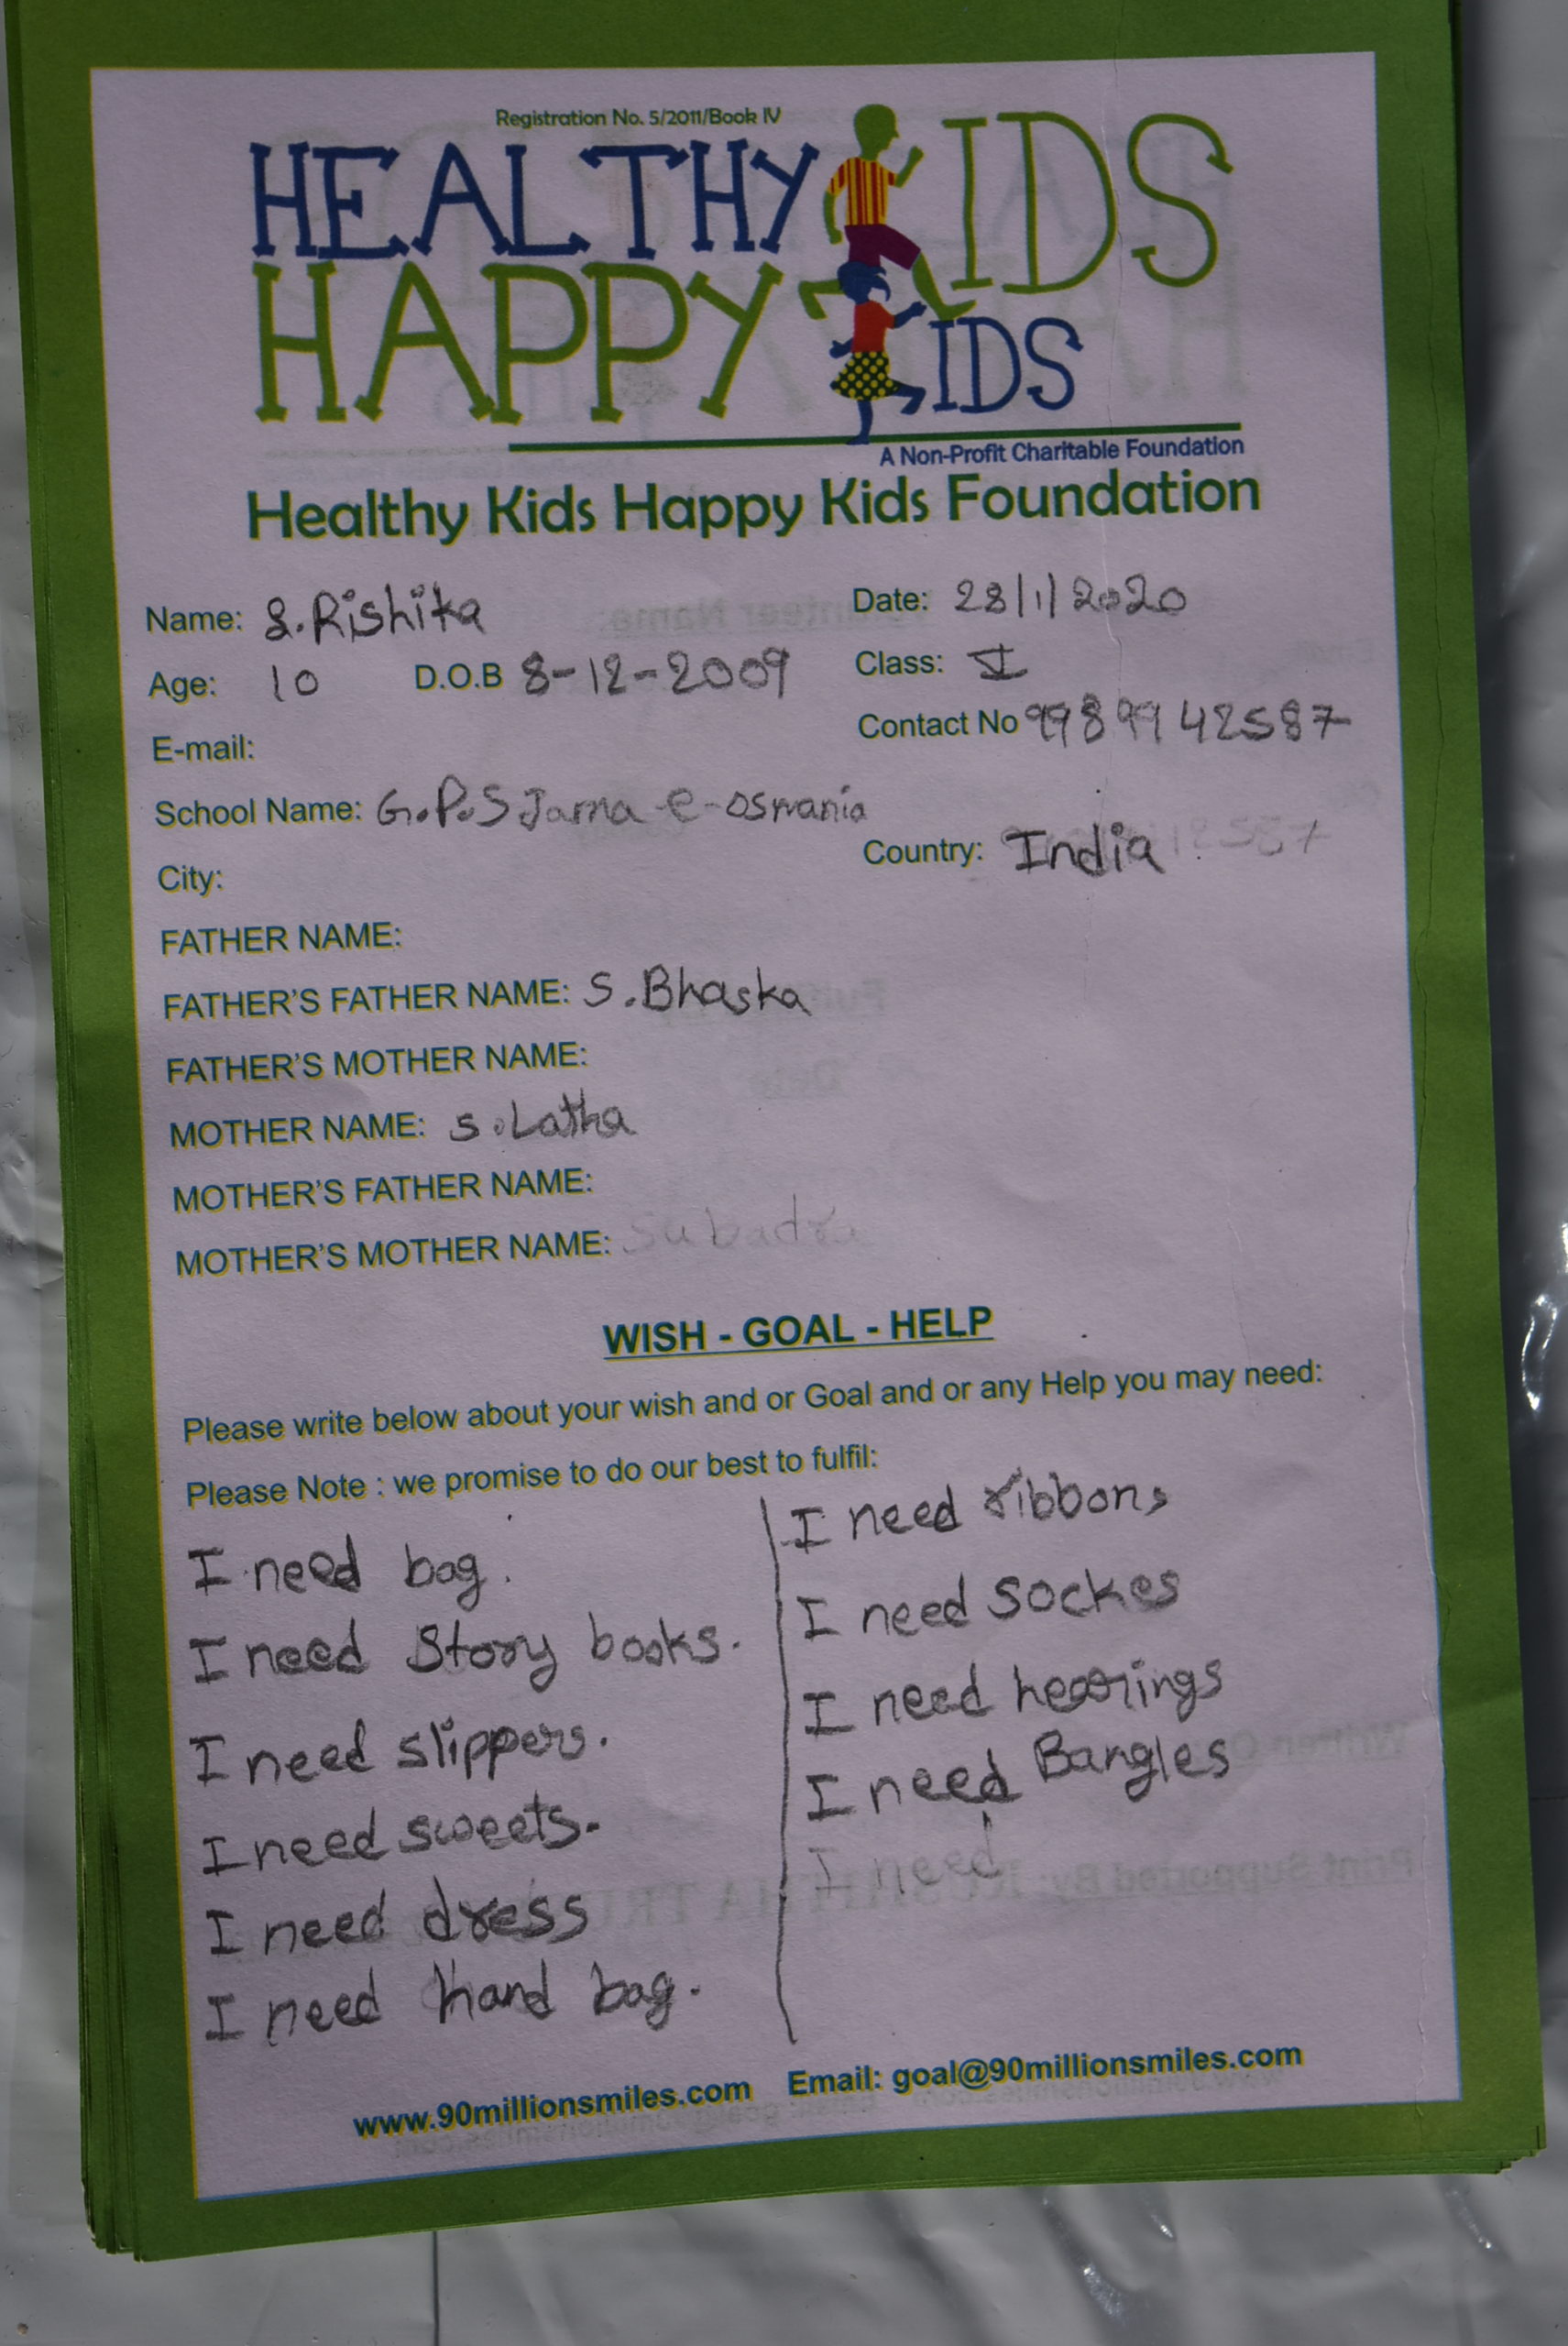 Registration No. 5/2011/Book IV
HEALTHY KIDS
HAPPY KIDS
A Non-Profit Charitable Foundation
Healthy Kids Happy Kids Foundation
Name: S.Rishika Date: 28/1/2020
Age: 10 D.O.B 8-12-2009 Class: V
E-mail: Contact No 9989942587
School Name: G.P.S Jama-e-osmania
City: Country: India
FATHER NAME:
FATHER'S FATHER NAME: S.Bhaska
FATHER'S MOTHER NAME:
MOTHER NAME: S.Latha
MOTHER'S FATHER NAME:
MOTHER'S MOTHER NAME: Subadra
WISH - GOAL - HELP
Please write below about your wish and or Goal and or any Help you may need:
Please Note : we promise to do our best to fulfil:
I need bag.
I need Story books.
I need slippers.
I need sweets.
I need dress
I need hand bag.
I need ribbons
I need sockes
I need hearings
I need Bangles
I need
www.90millionsmiles.com Email: goal@90millionsmiles.com